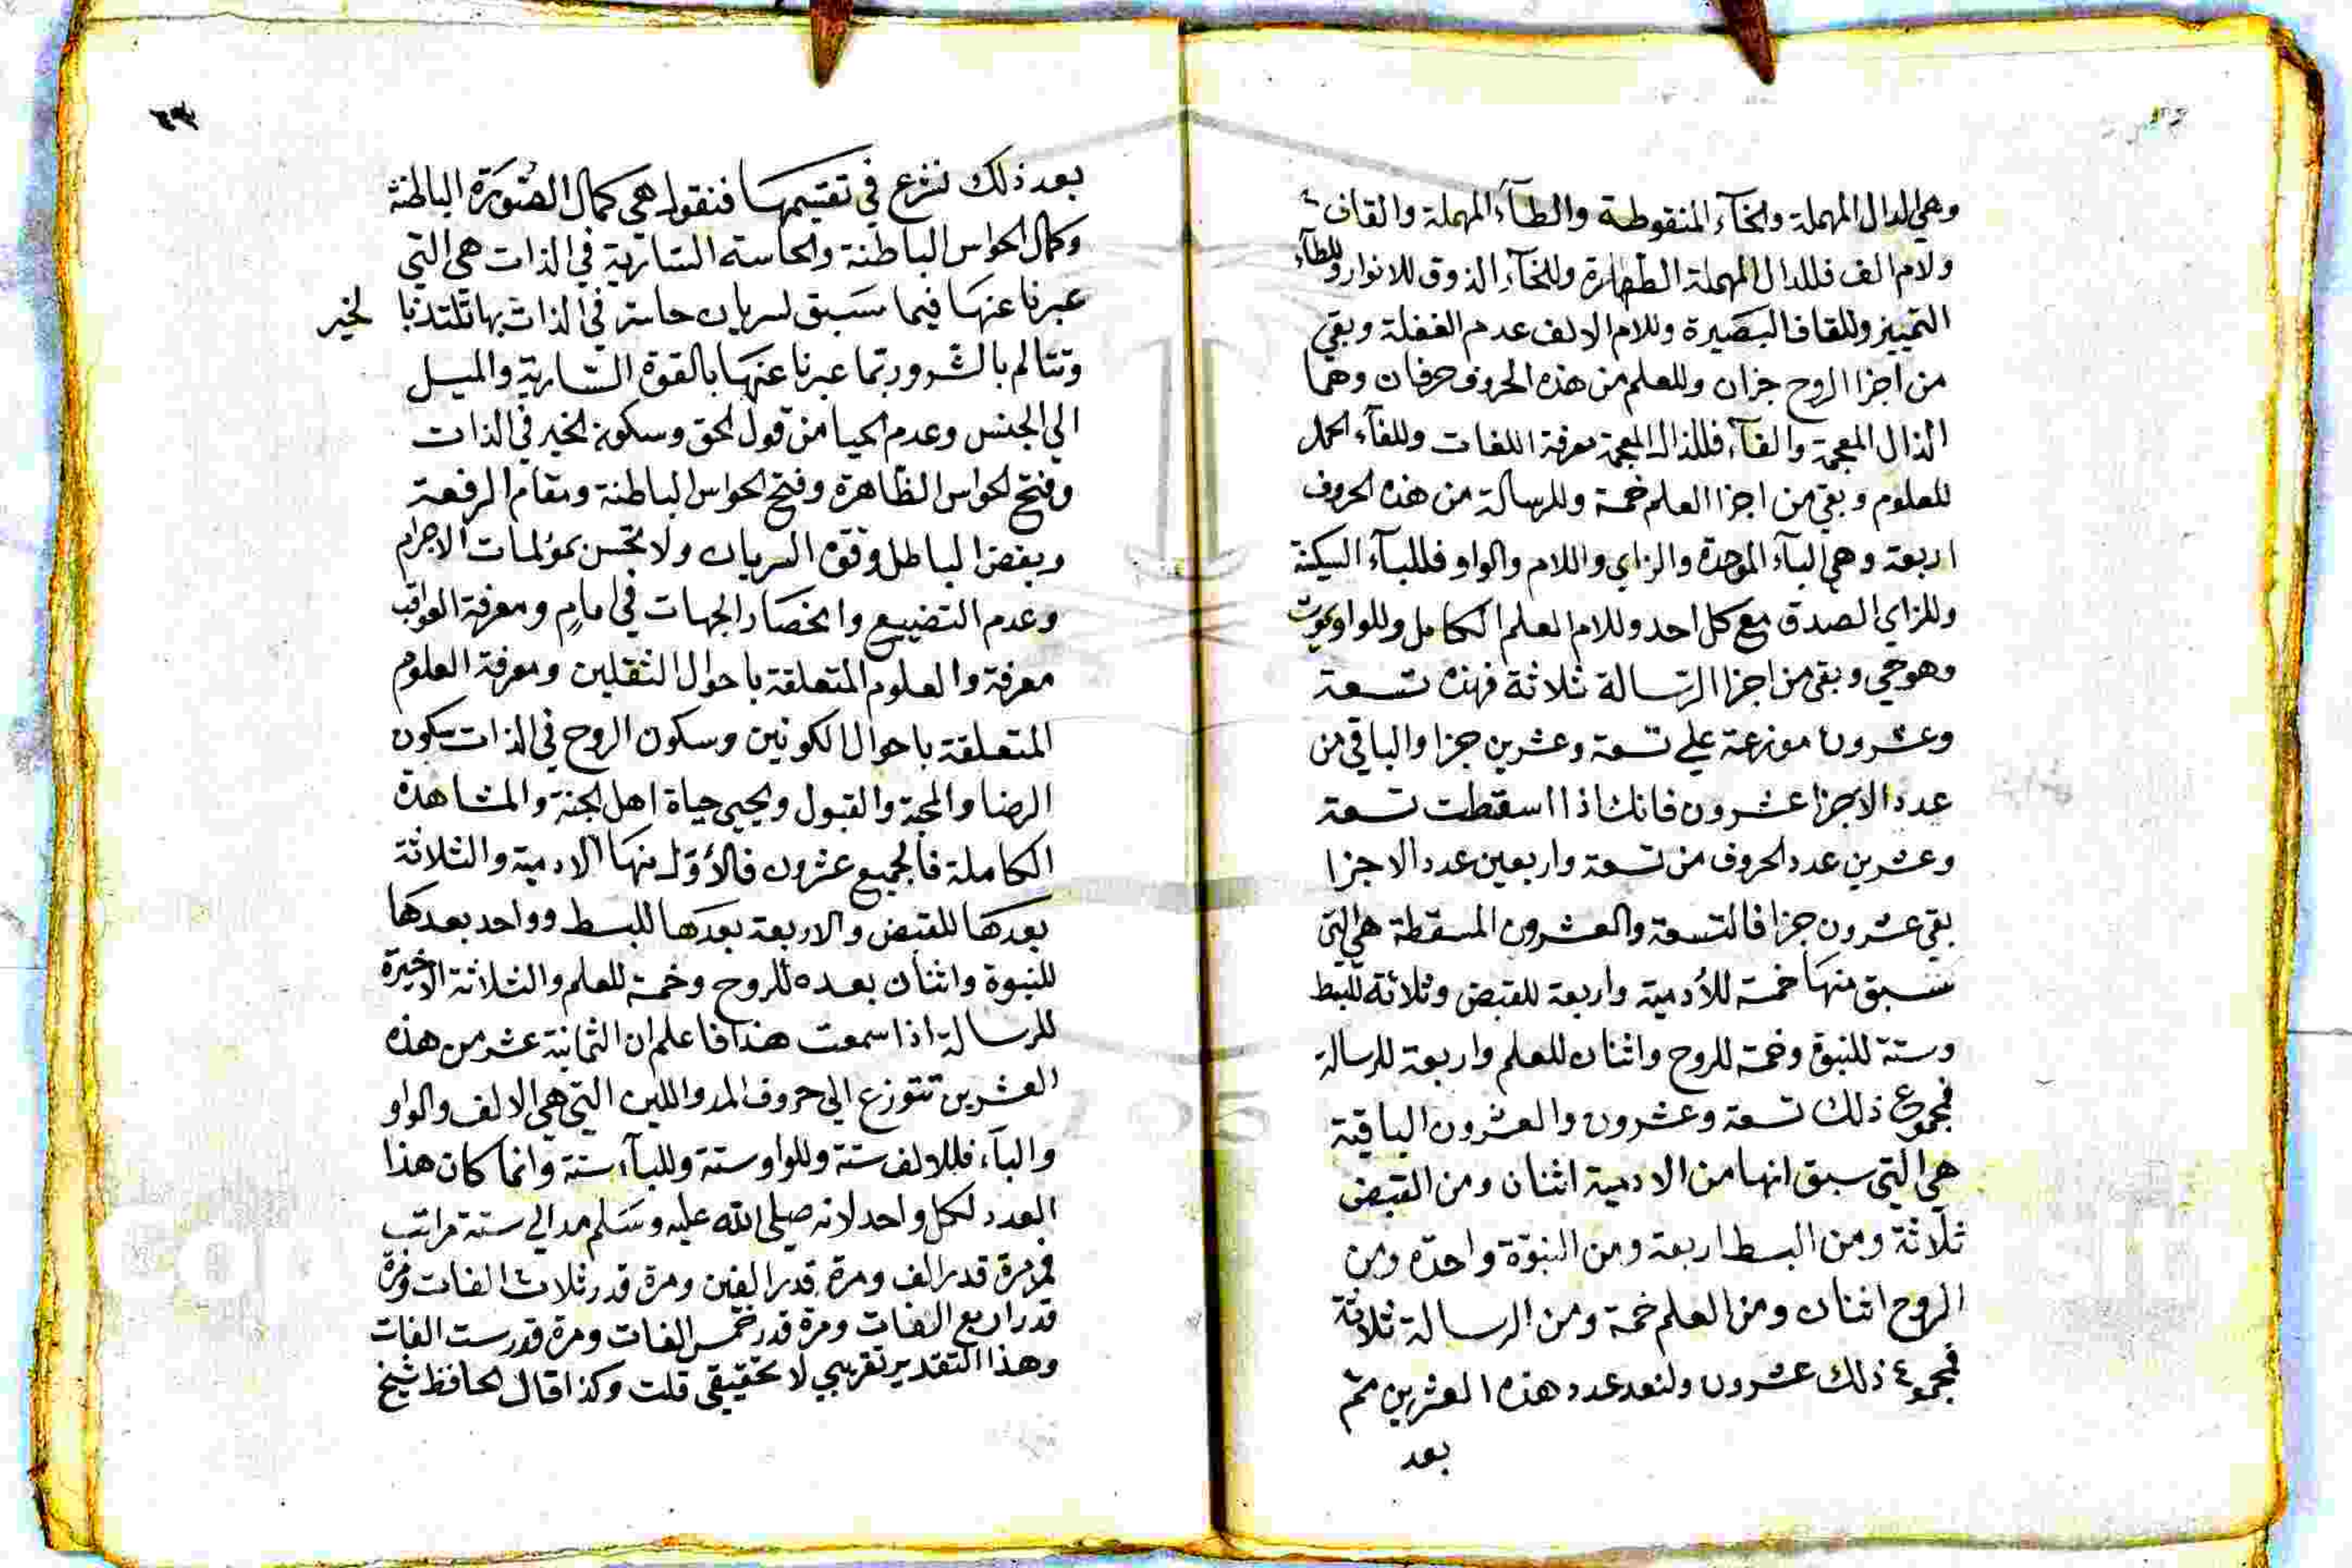 وهي الدال المهملة والخآء المنقوطة والطآء المهملة والقاف
ولام الف فللدال المهملة الطهارة وللخآء الذوق للانوار وللطآء
التمييز وللقاف البصيرة وللام الالف عدم الغفلة وبقي
من اجزا الروح جزان وللعلم من هذه الحروف حرفان وهما
الذال المعجمة والفآء فللذال المعجمة معرفة اللغات وللفآء الحمل
للعلوم وبقي من اجزا العلم خمسة وللرسالة من هذه الحروف
اربعة وهي البآء الموحدة والزاي واللام والواو فللبآء السكينة
وللزاي الصدق مع كل احد وللام العلم الكامل وللواو يموت
وهو حي وبقي من اجزا الرسالة ثلاثة فهذه تسعة
وعشرون موزعة علي تسعة وعشرين جزا والباقي من
عدد الاجزا عشرون فانك اذا اسقطت تسعة
وعشرين عدد الحروف من تسعة واربعين عدد الاجزا
بقي عشرون جزا فالتسعة والعشرون المسقطة هي التي
سبق منها خمسة للأدمية واربعة للقبض وثلاثة للبسط
وستة للنبوة وخمسة للروح واثنان للعلم واربعة للرسالة
فمجموع ذلك تسعة وعشرون والعشرون الباقية
هي التي سبق انها من الادمية اثنان ومن القبض
ثلاثة ومن البسط اربعة ومن النبوة واحدة ومن
الروح اثنان ومن العلم خمسة ومن الرسالة ثلاثة
فمجموع ذلك عشرون ولنعد عدد هذه العشرين ثم
بعد
بعد ذلك نشرع في تقسيمها فنقول هي كمال الصورة الباطنة
وكمال الحواس الباطنة والحاسة السارية في الذات هي التي
عبرنا عنها فيما سبق لسريان حاسة في الذات بها تلتذ با لخير
وتتالم بالشرور ربما عبرنا عنها بالقوة السارية والميل
الي الجنس وعدم الحيا من قول الحق وسكون الخير في الذات
وفتح الحواس الظاهرة وفتح الحواس الباطنة ومقام الرفعة
وبغض الباطل وقوة السريان ولا تحس بمؤلمات الاجرام
وعدم التضييع وانحصار الجهات في امام ومعرفة العواقب
معرفة والعلوم المتعلقة باحوال الثقلين ومعرفة العلوم
المتعلقة باحوال الكونين وسكون الروح في الذات سكون
الرضا والمحبة والقبول ويحيي حياة اهل الجنة والمشاهدة
الكاملة فالجميع عشرون فالأول منها للادمية والثلاثة
بعدها للقبض والاربعة بعدها للبسط وواحد بعدها
للنبوة واثنان بعده للروح وخمسة للعلم والثلاثة الاخيرة
للرسالة اذا سمعت هذا فاعلم ان الثمانية عشر من هذه
العشرين تتوزع الي حروف المد واللين التي هي الالف والواو
واليآء فللالف ستة وللواو ستة ولليآء ستة وانما كان هذا
العدد لكل واحد لانه صلي الله عليه وسلم مد الي ستة مراتب
فمرة قدر الف ومرة قدر الفين ومرة قدر ثلاث الفات ومرة
قدر اربع الفات ومرة قدر خمس الفات ومرة قدر ست الفات
وهذا التقدير تقريبي لا تحقيقي قلت وكذا قال الحافظ شيخ